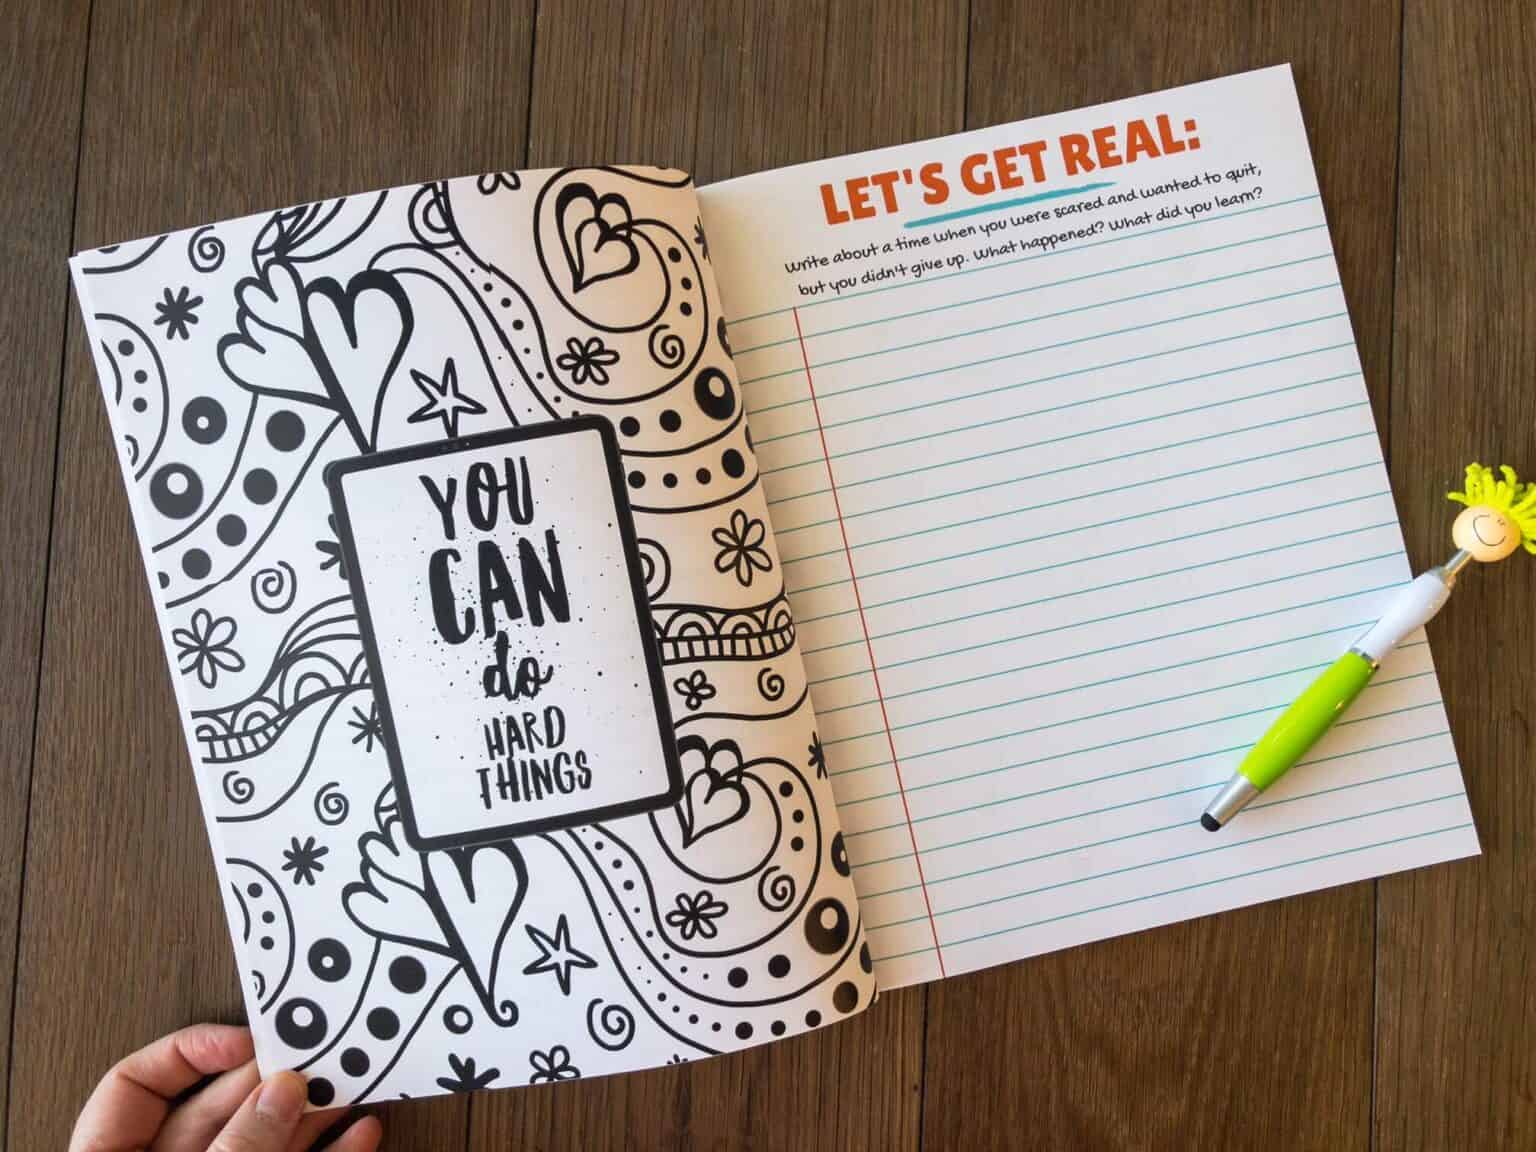 YOU
CAN
do
HARD
THINGS
LET'S GET REAL:
Write about a time when you were scared and wanted to quit,
but you didn't give up. What happened? What did you learn?